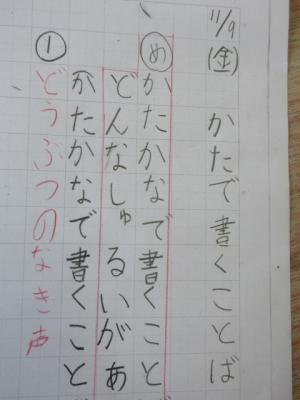 11/9
(金) かたで書くことば
め かたかなで書くこと
どんなしゅるいがあ
かたかなで書くこと
① どうぶつのなき声